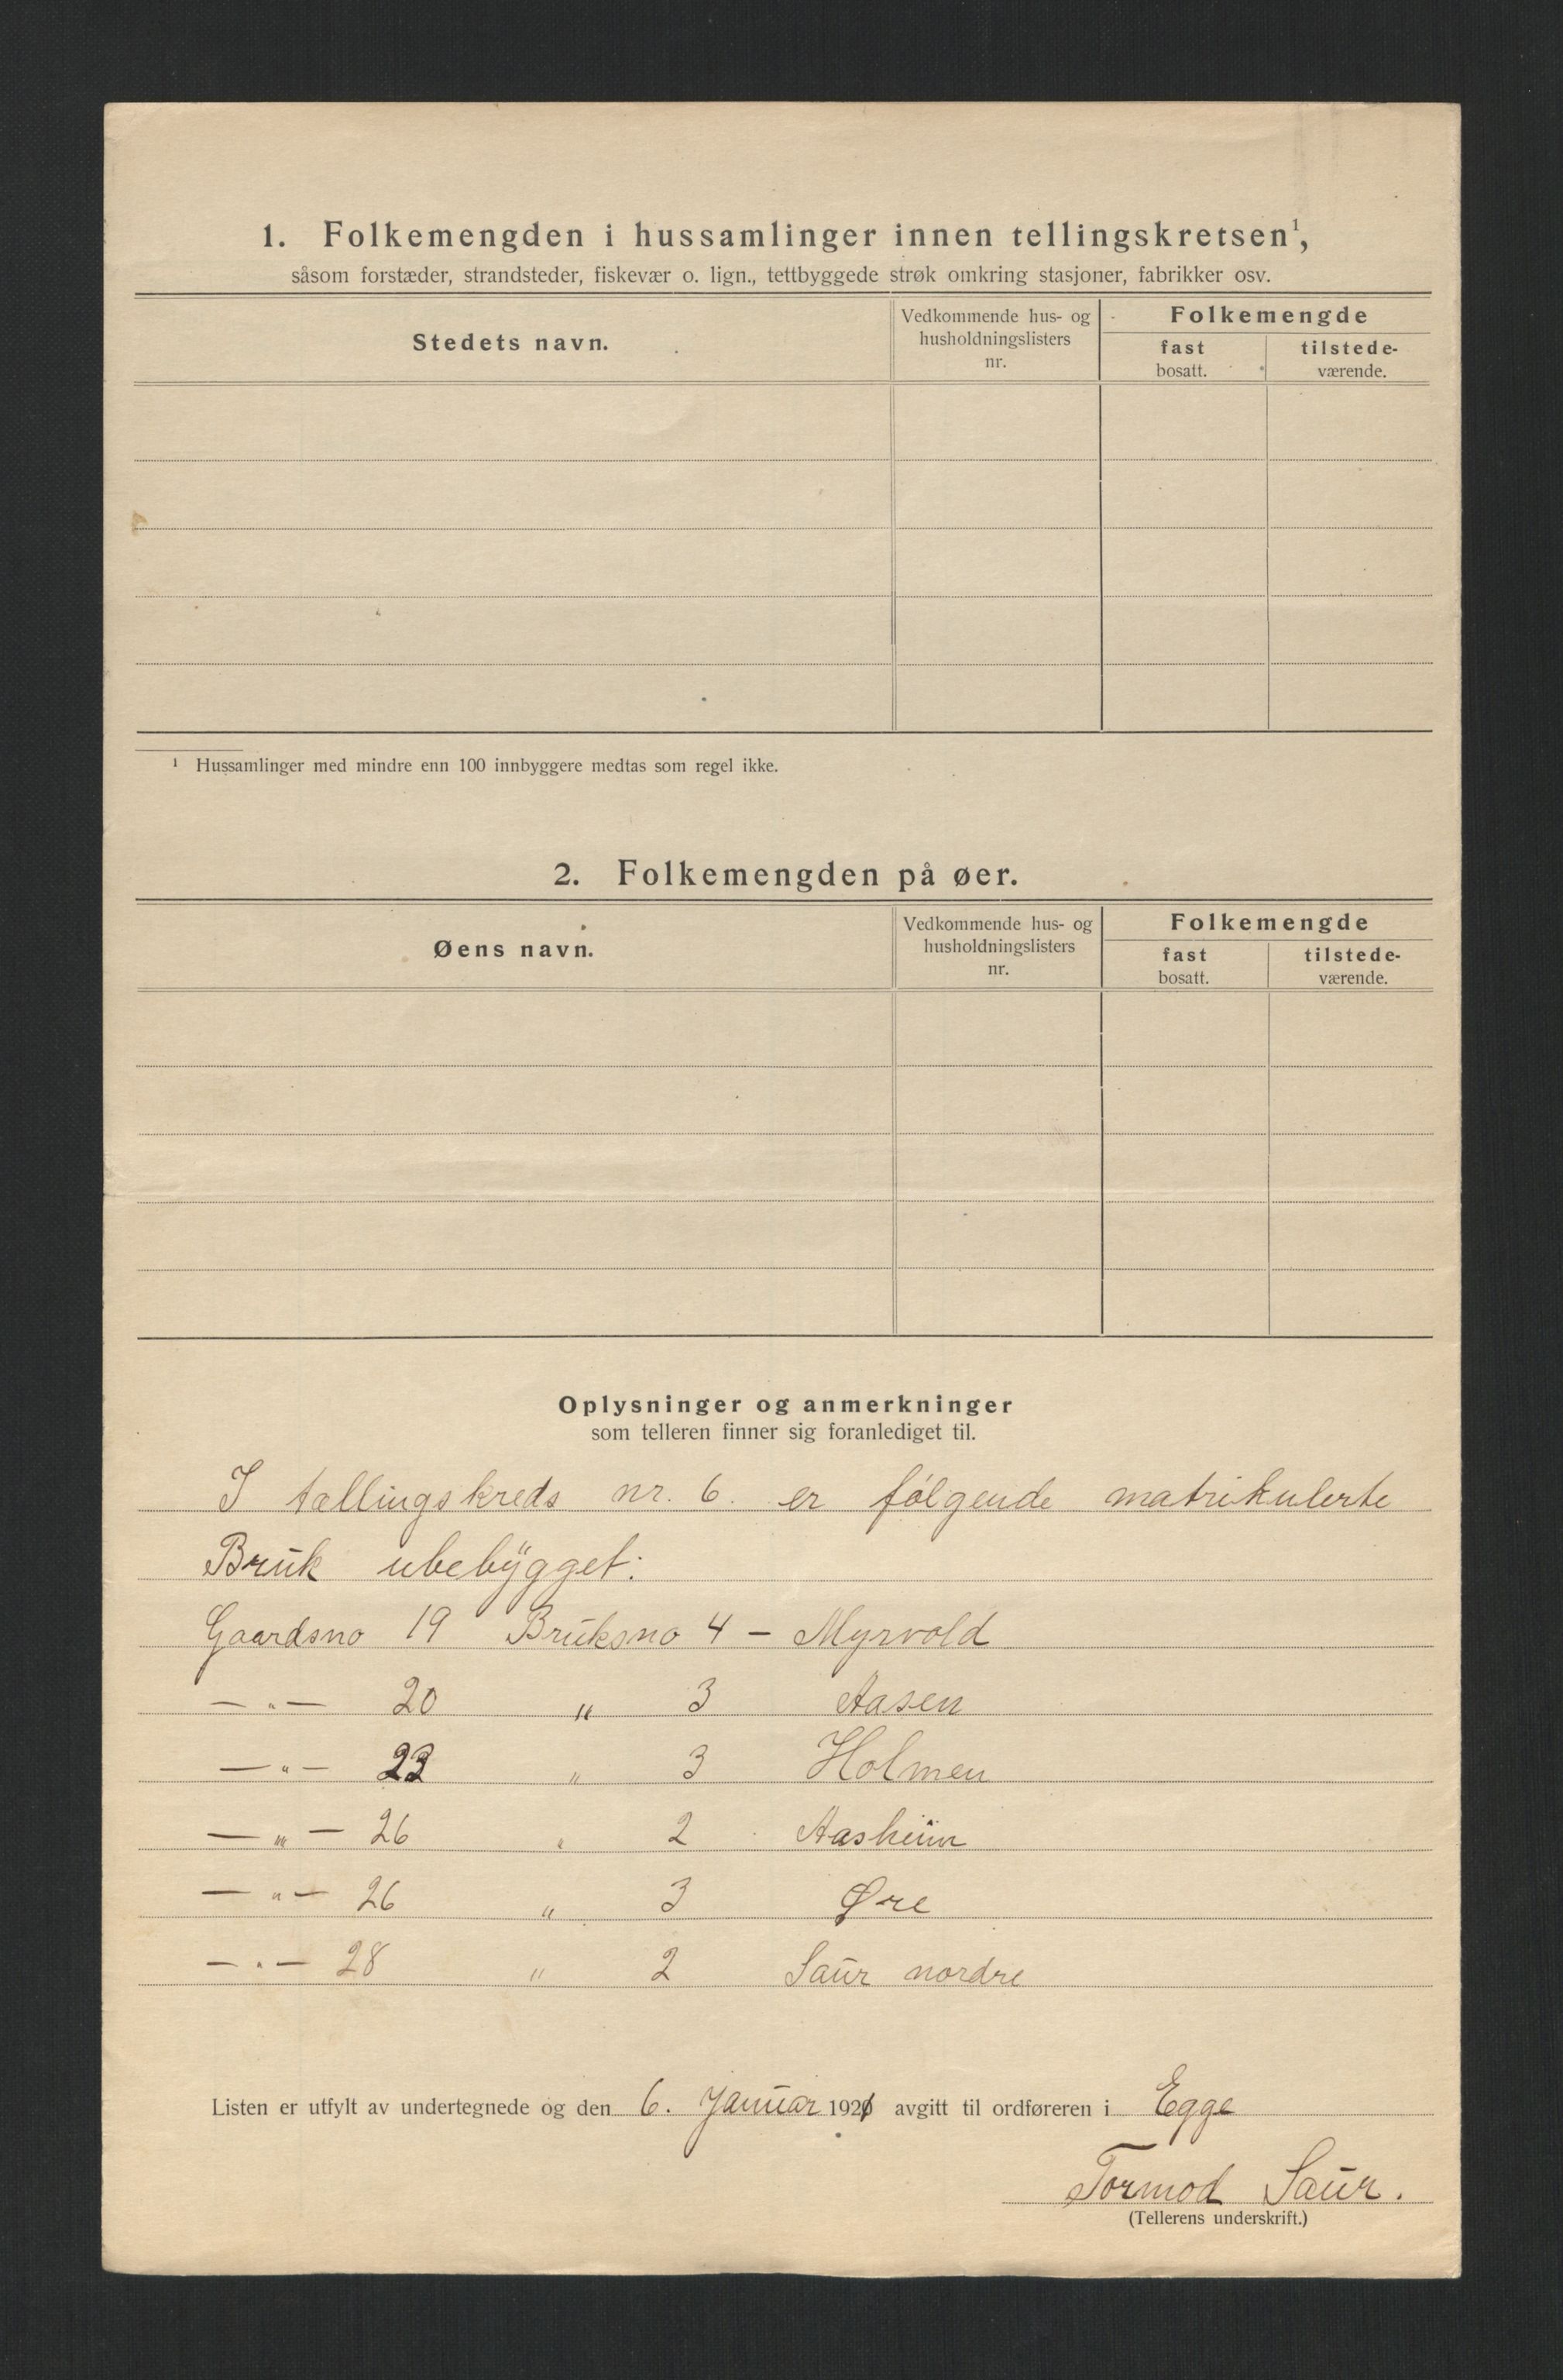 1. Folkemengden i hussamlinger innen tellingskretsen¹,
såsom forstæder, strandsteder, fiskevær o. lign., tettbyggede strøk omkring stasjoner, fabrikker osv.
Stedets navn.
Vedkommende hus- og
husholdningslisters
nr.
Folkemengde
fast
bosatt.
tilstede-
værende.
¹ Hussamlinger med mindre enn 100 innbyggere medtas som regel ikke.
2. Folkemengden på øer.
Øens navn.
Vedkommende hus- og
husholdningslisters
nr.
Folkemengde
fast
bosatt.
tilstede-
værende.
Oplysninger og anmerkninger
som telleren finner sig foranlediget til.
I tællingskreds nr. 6. er følgende matrikulerte
Bruk ubebygget:
Gaardsno 19 Bruksno 4 – Myrvold
— " — 20 " 3 Aasen
— " — 23 " 3 Holmen
— " — 26 " 2 Aasheim
— " — 26 " 3 Øre
— " — 28 " 2 Saur nordre
Listen er utfylt av undertegnede og den 6. Januar 1921 avgitt til ordføreren i Egge
Tormod Saur.
(Tellerens underskrift.)